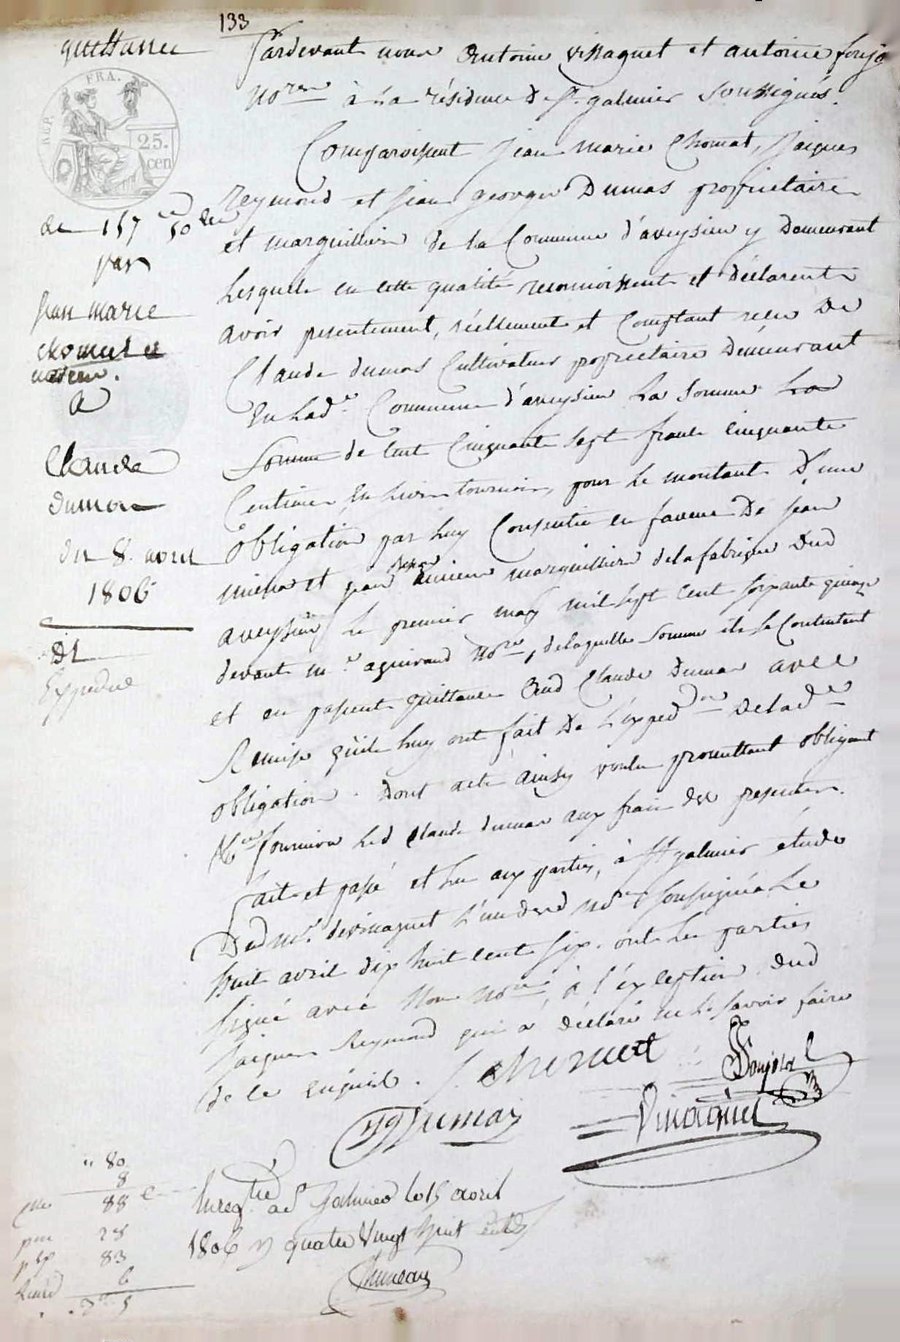 133
quittance
REP. FRA.
25. cen
de 157 50
par
Jean marie
chomat et
a
Claude
dumas
du 8. avril
1806
Expedié
Pardevant nous Antoine Vinaguet et antoine
No.res à la résidence de St. galmier soussignés.
Comparoissent Jean Marie Chomat, Jaques
Reymond et Jean George Dumas proprietaire
et marguilliers de la Commune d'aveysieu y Demeurant
Lesquels en cette qualité reconnoissent et déclarent
avoir presentement, réellement et Comptant recu De
Claude dumas Cultivateur proprietaire Demeurant
En Lad.e Commune d'aveysieu La Somme La
Somme de Cent Cinquante sept francs Cinquante
Centimes En livres tournois, pour Le montant D'une
obligation par luy Consentie en faveur De Jean
et jean marguilliers de la fabrique dud
aveysieu Le premier may mil sept Cent soixante quinze
devant m.e No.re, de laquelle Somme ils se Contentent
et en passent quittance aud Claude Dumas avec
Remise qu'ils luy ont fait De L'exped.on De lad.e
obligation. Dont acte ainsy voulu promettant obligeant
fournira Led Claude dumas aux frais des presentes.
fait et passé et lu aux parties, à St galmier étude
Dud M.e devinaguet L'un desd No.res soussignés Le
huit avril dix huit cent six. ont Les parties
signé avec Nous No.res, à l'exception dud
Jaques Reymond qui a déclaré ne Le savoir faire
de ce enquis.
J. chomat
Dumas
Vinaguet
80
8
88 c
28
83
6
3 5
Enreg.tré a St Galmier le 15 avril
1806 quatre Vingt huit